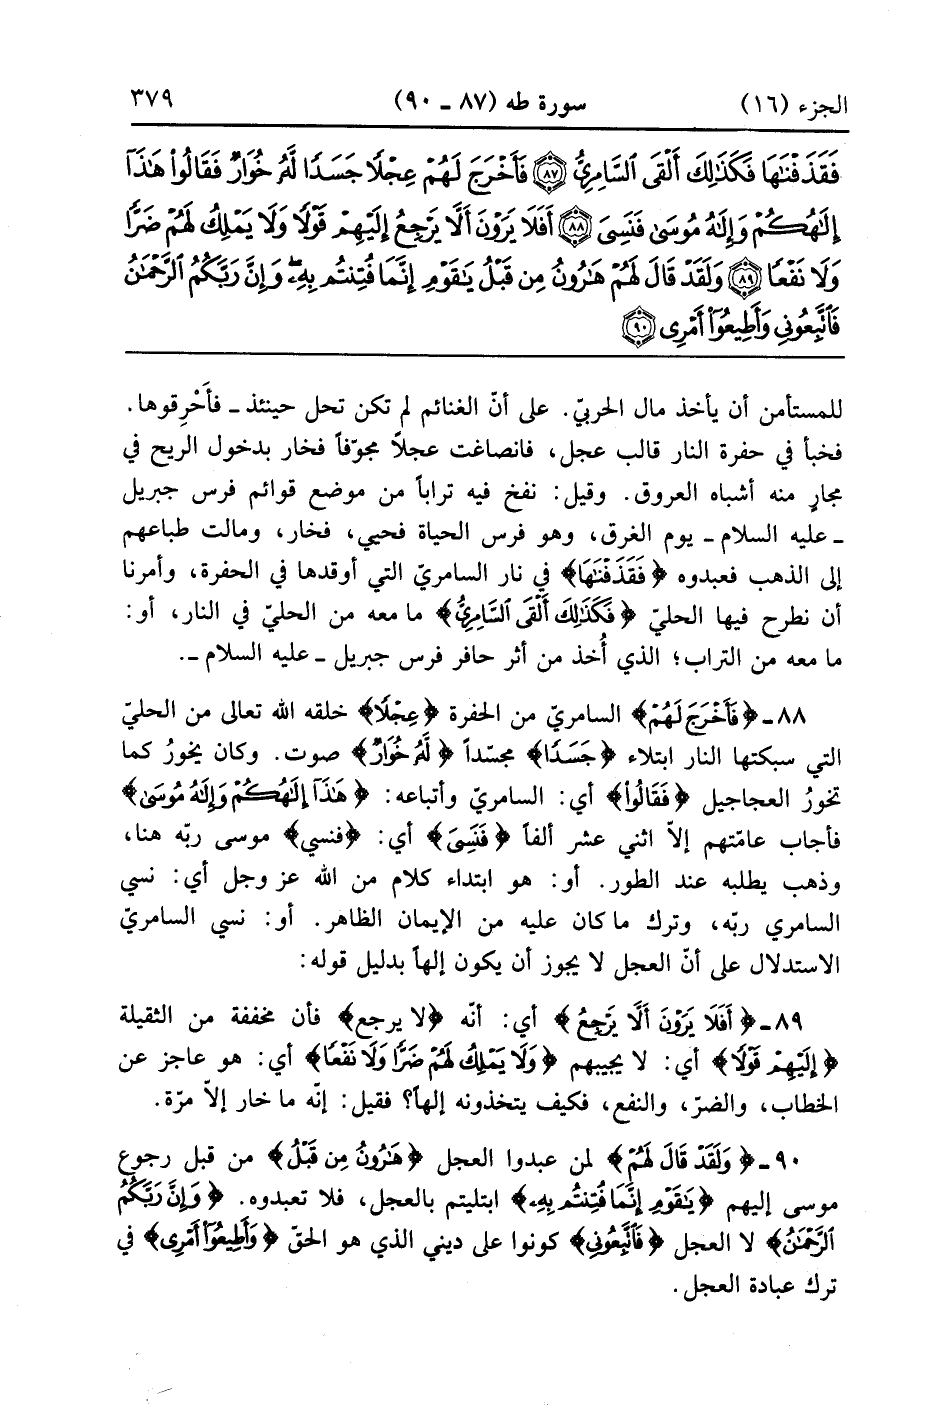 الجزء (١٦) سورة طه (٨٧ ـ ٩٠) ٣٧٩
فَقَذَفْنَٰهَا فَكَذَٰلِكَ أَلْقَى ٱلسَّامِرِىُّ ﴿٨٧﴾ فَأَخْرَجَ لَهُمْ عِجْلًا جَسَدًا لَّهُۥ خُوَارٌ فَقَالُوا۟ هَٰذَآ
إِلَٰهُكُمْ وَإِلَٰهُ مُوسَىٰ فَنَسِىَ ﴿٨٨﴾ أَفَلَا يَرَوْنَ أَلَّا يَرْجِعُ إِلَيْهِمْ قَوْلًا وَلَا يَمْلِكُ لَهُمْ ضَرًّا
وَلَا نَفْعًا ﴿٨٩﴾ وَلَقَدْ قَالَ لَهُمْ هَٰرُونُ مِن قَبْلُ يَٰقَوْمِ إِنَّمَا فُتِنتُم بِهِۦ ۖ وَإِنَّ رَبَّكُمُ ٱلرَّحْمَٰنُ
فَٱتَّبِعُونِى وَأَطِيعُوٓا۟ أَمْرِى ﴿٩٠﴾
للمستأمن أن يأخذ مال الحربيّ. على أنّ الغنائم لم تكن تحل حينئذ ـ فأَحْرِقوها.
فخبأ في حفرة النار قالب عجل، فانصاغت عجلاً مجوّفاً فخار بدخول الريح في
مجارٍ منه أشباه العروق. وقيل: نفخ فيه تراباً من موضع قوائم فرس جبريل
ـ عليه السلام ـ يوم الغرق، وهو فرس الحياة فحيي، فخار، ومالت طباعهم
إلى الذهب فعبدوه ﴿فَقَذَفْنَٰهَا﴾ في نار السامريّ التي أوقدها في الحفرة، وأمرنا
أن نطرح فيها الحليّ ﴿فَكَذَٰلِكَ أَلْقَى ٱلسَّامِرِىُّ﴾ ما معه من الحليّ في النار، أو:
ما معه من التراب؛ الذي أُخذ من أثر حافر فرس جبريل ـ عليه السلام ـ.
٨٨ ـ ﴿فَأَخْرَجَ لَهُمْ﴾ السامريّ من الحفرة ﴿عِجْلًا﴾ خلقه الله تعالى من الحليّ
التي سبكتها النار ابتلاء ﴿جَسَدًا﴾ مجسّداً ﴿لَّهُۥ خُوَارٌ﴾ صوت. وكان يخورُ كما
تخورُ العجاجيل ﴿فَقَالُوا۟﴾ أي: السامريّ وأتباعه: ﴿هَٰذَآ إِلَٰهُكُمْ وَإِلَٰهُ مُوسَىٰ﴾
فأجاب عامّتهم إلاّ اثني عشر ألفاً ﴿فَنَسِىَ﴾ أي: ﴿فنسي﴾ موسى ربّه هنا،
وذهب يطلبه عند الطور. أو: هو ابتداء كلام من الله عز وجل أي: نسي
السامري ربّه، وترك ما كان عليه من الإيمان الظاهر. أو: نسي السامريّ
الاستدلال على أنّ العجل لا يجوز أن يكون إلهاً بدليل قوله:
٨٩ ـ ﴿أَفَلَا يَرَوْنَ أَلَّا يَرْجِعُ﴾ أي: أنّه ﴿لا يرجع﴾ فأن مخففة من الثقيلة
﴿إِلَيْهِمْ قَوْلًا﴾ أي: لا يجيبهم ﴿وَلَا يَمْلِكُ لَهُمْ ضَرًّا وَلَا نَفْعًا﴾ أي: هو عاجز عن
الخطاب، والضرّ، والنفع، فكيف يتخذونه إلهاً؟ فقيل: إنّه ما خار إلاّ مرّة.
٩٠ ـ ﴿وَلَقَدْ قَالَ لَهُمْ﴾ لمن عبدوا العجل ﴿هَٰرُونُ مِن قَبْلُ﴾ من قبل رجوع
موسى إليهم ﴿يَٰقَوْمِ إِنَّمَا فُتِنتُم بِهِۦ﴾ ابتليتم بالعجل، فلا تعبدوه. ﴿وَإِنَّ رَبَّكُمُ
ٱلرَّحْمَٰنُ﴾ لا العجل ﴿فَٱتَّبِعُونِى﴾ كونوا على ديني الذي هو الحقّ ﴿وَأَطِيعُوٓا۟ أَمْرِى﴾ في
ترك عبادة العجل.